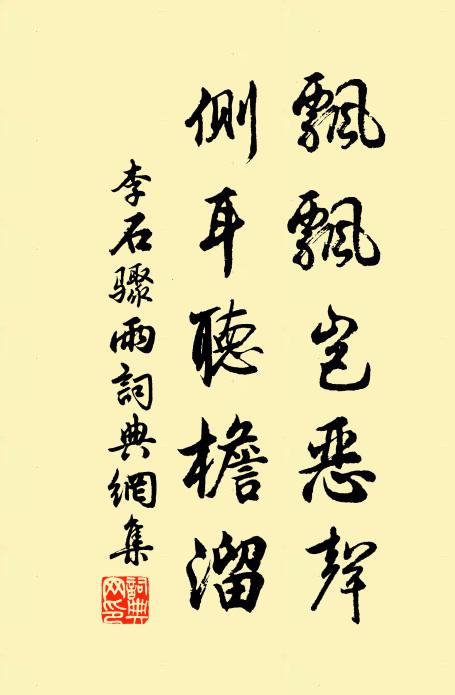 飄飄豈惡聲
側耳聽檐溜
李石驟雨詞典網集
詞典網印